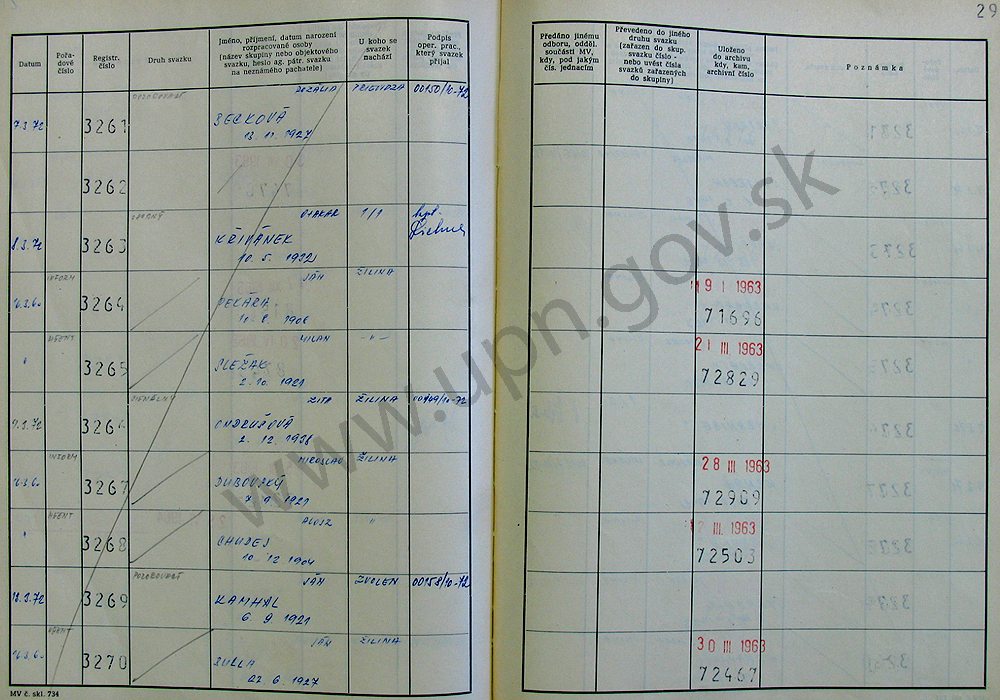 29
Datum
Pořa-
dové
číslo
Registr.
číslo
Druh svazku
Jméno, příjmení, datum narození
rozpracované osoby
(název skupiny nebo objektového
svazku, heslo ag. pátr. svazku
na neznámého pachatele)
U koho se
svazek
nachází
Podpis
oper. prac.,
který svazek
přijal
Předáno jinému
odboru, odděl.
součásti MV,
kdy, pod jakým
čís. jednacím
Převedeno do jiného
druhu svazku
(zařazen do skup.
svazku číslo -
nebo uvést čísla
svazků zařazených
do skupiny)
Uloženo
do archivu
kdy, kam,
archivní číslo
Poznámka
ROZÁLIA PRIEVIDZA 00150/10-72
7.3.72 3261 SECKOVÁ
13. 11. 1927
3262
OTAKAR 1/1
8.3.72 3263 KŘIVÁNEK
10. 5. 1932
INFORM JÁN ŽILINA
3264 PEKÁRA
8. 1906
9 I 1963
71696
AGENT MILAN -"-
3265 SLEŽAK
2. 10. 1921
21 III 1963
72829
SIGNÁLNY ZITA ŽILINA
9.3.72 3266 ONDRUŠOVÁ
2. 12. 1938
INFORM MIROSLAV ŽILINA
3267 DUBOVSKÝ
7. 9. 1921
28 III 1963
72909
AGENT ALOJZ "
3268 CHUDEJ
10. 12 1904
12 III. 1963
72503
POZOROVACÍ JÁN ZVOLEN 00158/10-72
3269 KAMHAL
6. 9. 1921
AGENT JÁN ŽILINA
3270 BULLA
22 6. 1927
30 III 1963
72467
MV č. skl. 734
www.upn.gov.sk